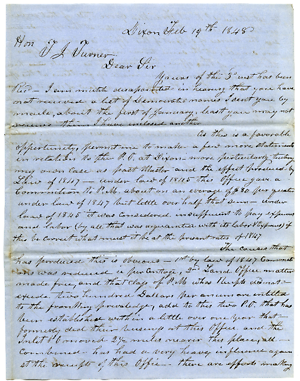 Dixon Feb 19th 1848
Hon
T J Turner
Dear Sir
Yours of the 3d inst has been
Rec'd — I am much disappointed in hearing that you have
not received a list of Democratic names I sent you by
about the first of January, least you may not
As this is a favorable
opportunity, permit me to make a few more statements
in relation to the P.O. at Dixon more particularly touching
my own case as Post Master and the effect produced by
Law of 1847 — under law of 1845 this office gave in
Commissions to P.M. about on an average of $ per quarter
under law of 1847 but little over half that sum — under
law of 1845 it was considered insufficient to pay expenses
and labor (by all that was acquainted with its labor & expenses) &
this be correct what must it be at the present rates of 1847
The causes that
has produced this is obvious — 1st by law of 1847 Commissi
ons was reduced in per centage, 2nd Land Office matter
made free, and that class of P.M. whose Receipts did not
exceed two hundred Dollars per annum are entitled
to the franking privilege, add to this three P.Os that has
been established within a little over one year that
formerly did their business at this Office and the
Inlet P.O. removed 2½ miles nearer this place, all
Combined — has had a very heavy influence against
at the receipts of this Office — there are efforts making